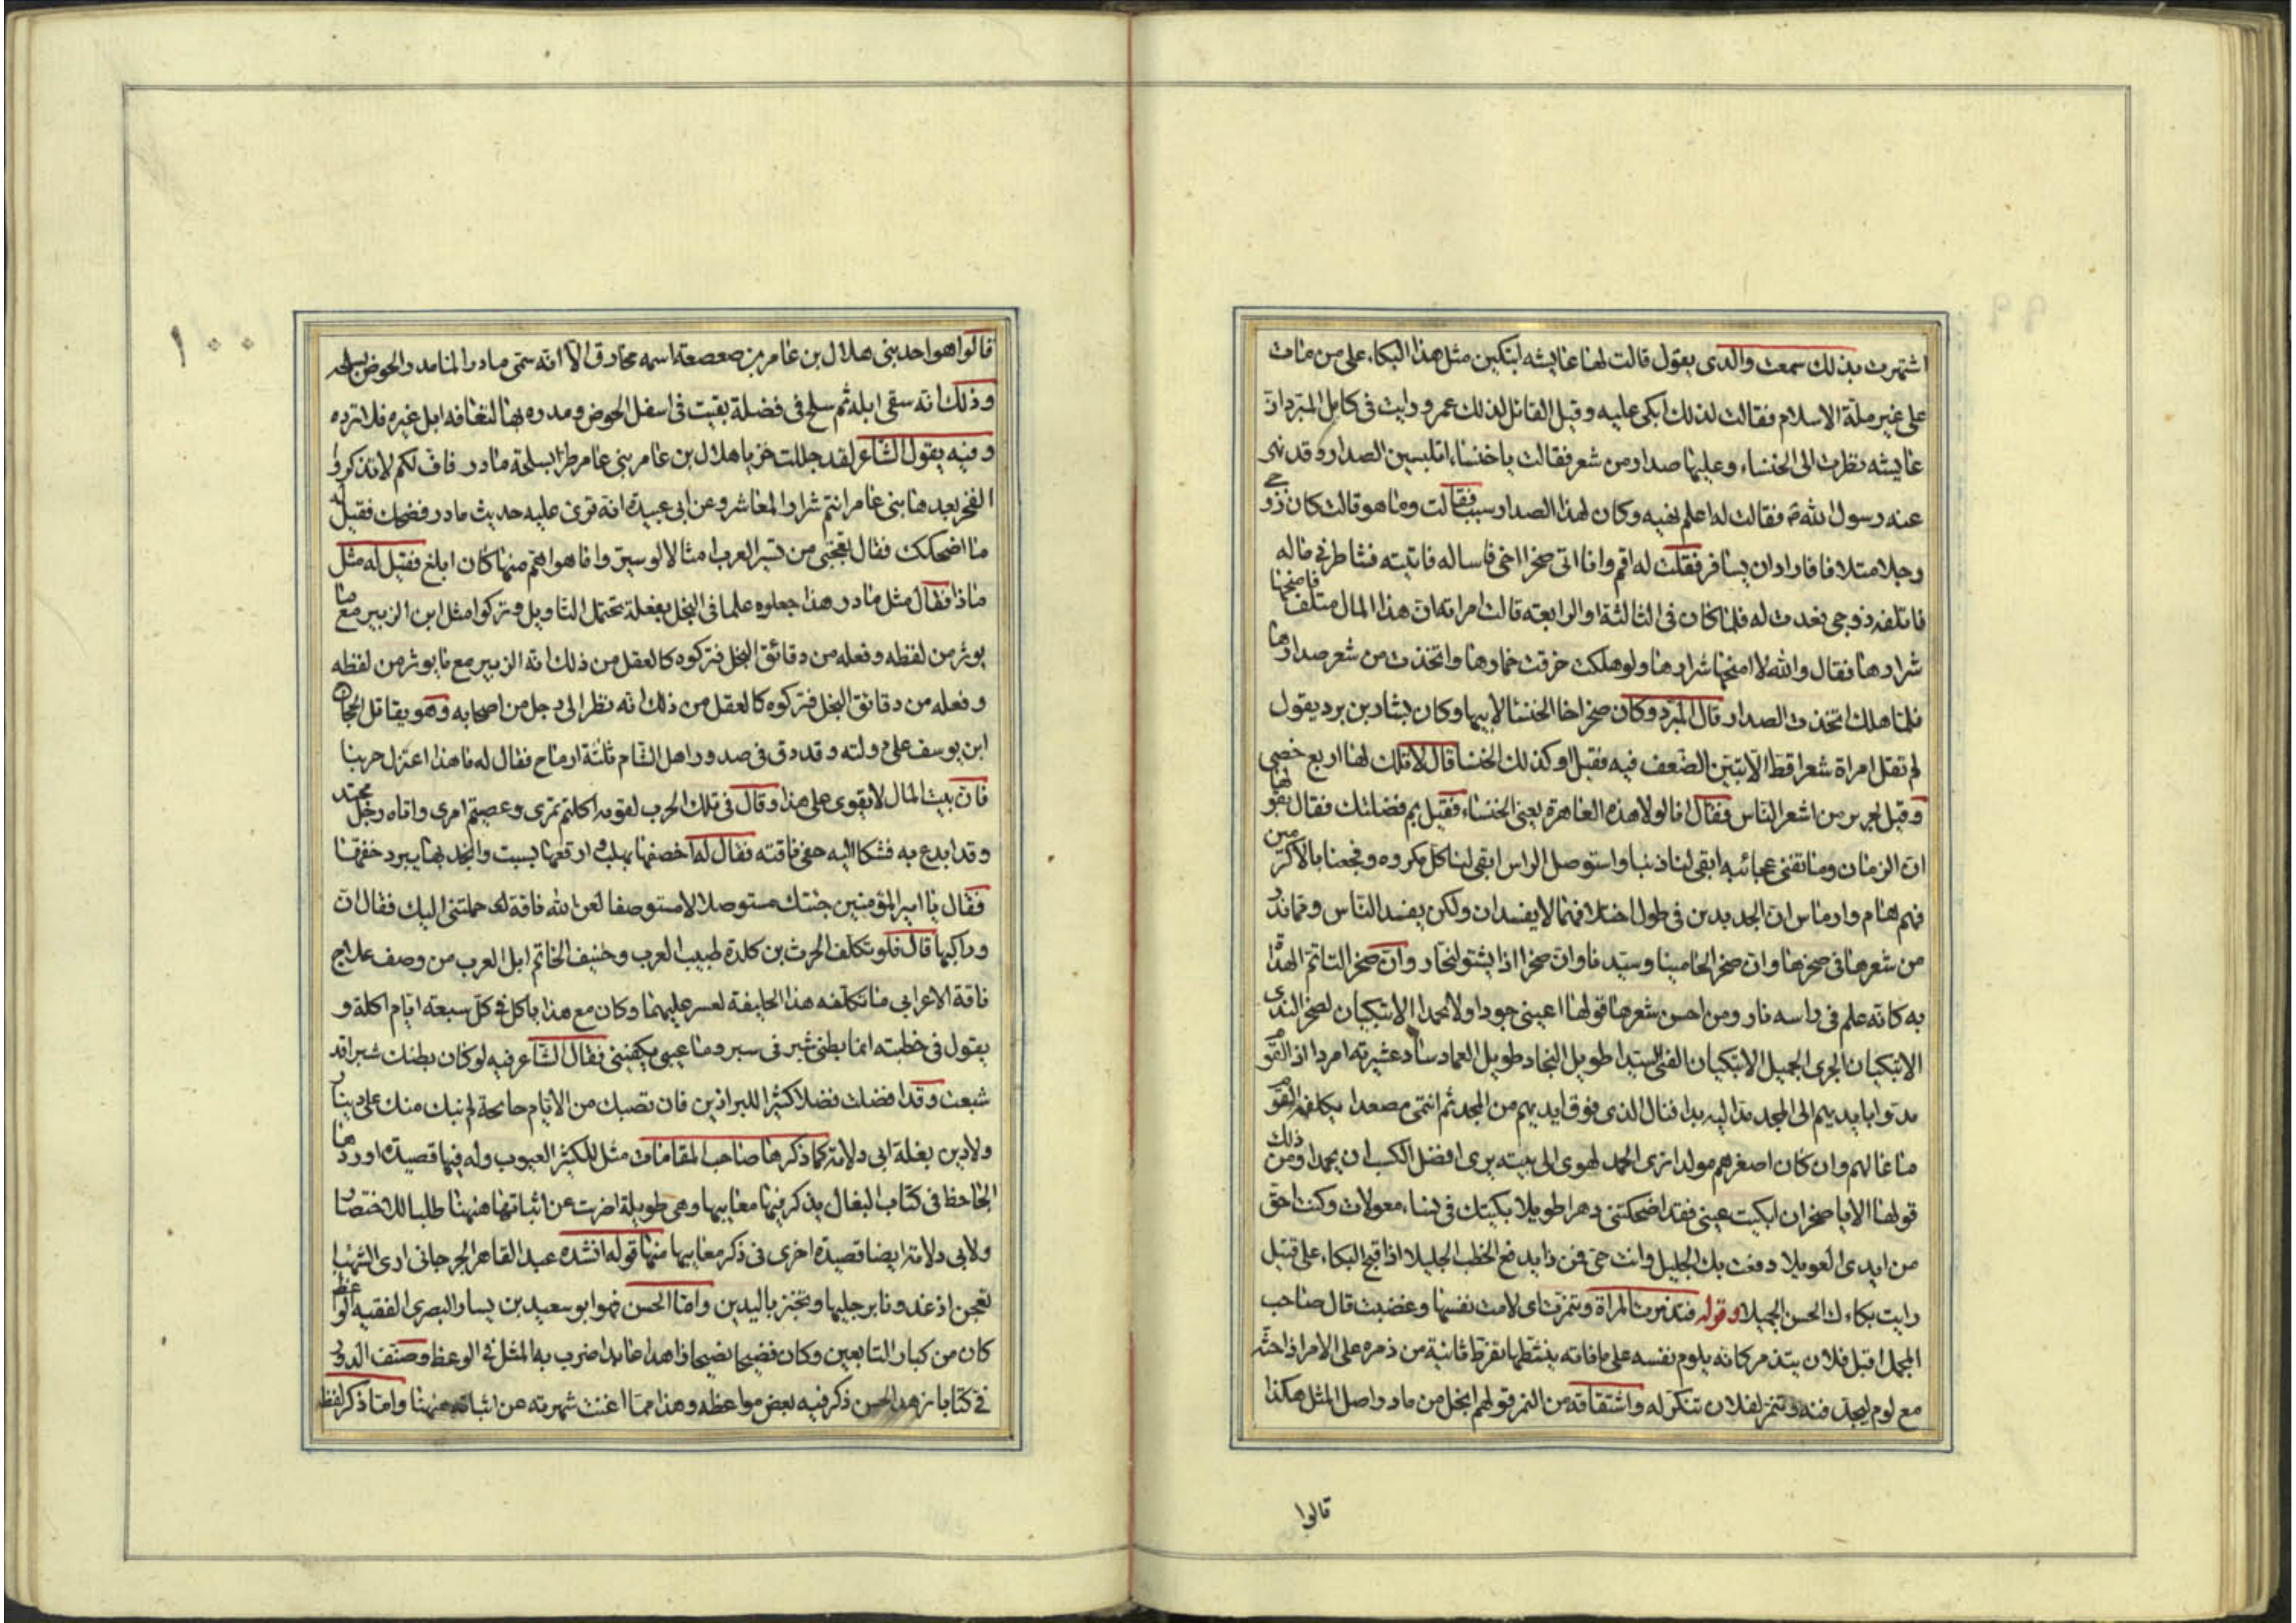 اشتهرت بذلك سمعت والدى يقول قالت لها عايشه اتبكين مثل هذا البكاء على من مات
على غير ملة الاسلام فقالت لذلك ابكى عليه وقيل القائل لذلك عمر ورايت فى كامل المبرد ان
عايشه نظرت الى الخنساء وعليها صدار من شعر فقالت يا خنساء اتلبسين الصدار وقد نهى
عنه رسول الله ص فقالت له اعلم بنهيه وكان لهذا الصدار سبب فقالت وما هو قالت كان زوجى
رجلا متلافا فاراد ان يسافر فقلت له اقم وانا اتى صخرا اخى فاساله فاتيته فشاطرنى ماله
فاتلفه زوجى فعدت له فلما كان فى الثالثة او الرابعة قالت امراته ان هذا المال متلف فامنحها
شرارها فقال والله لا امنحها شرارها ولو هلكت خرقت خمارها واتخذت من شعر صدارها
فلما هلك اتخذت الصدار قال المبرد وكان صخر اخا الخنسا لابيها وكان بشار بن برد يقول
لم تقل امراة شعرا قط الا تبين الضعف فيه فقيل او كذلك الخنسا قال لا تلك لها اربع خصى
وقيل لجرير من اشعر الناس فقال انا لولا هذه العاهرة يعنى الخنساء فقيل بم فضلتك فقال بقولها
ان الزمان وما تفنى عجائبه ابقى لنا ذنبا واستوصل الراس ابقى لنا كل مكروه وفجعنا بالاكرمين
فهم هام وارماس ان الجديدين فى طول اختلافهما لا يفسدان ولكن يفسد الناس ومما ندر
من شعرها فى صخرها وان صخرا لحامينا وسيدنا وان صخرا اذا يشتو لنحار وان صخرا لتاتم الهداة
به كانه علم فى راسه نار ومن احسن شعرها قولها اعينى جودا ولا تجمدا الا تبكيان لصخر الندى
الا تبكيان الجرى الجميل الا تبكيان الفتى السيدا طويل النجاد طويل العماد ساد عشيرته امردا اذا القوم
مدوا بايديهم الى المجد مد اليه يدا فنال الذى فوق ايديهم من المجد ثم انتمى مصعدا يكلفه القوم
ما عالهم وان كان اصغرهم مولدا ترى الحمد يهوى الى بيته يرى افضل الكسب ان يحمدا ومن ذلك
قولها الا يا صخر ان ابكيت عينى فقد اضحكتنى دهرا طويلا بكيتك فى نساء معولات وكنت احق
من ابدى العويلا دفعت بك الجليل وانت حى فمن ذا يدفع الخطب الجليلا اذا قبح البكاء على قتيل
رايت بكاءك الحسن الجميلا وقوله فتذمرت المراة وتنمرت اى لامت نفسها وغضبت قال صاحب
المجمل اقبل فلان يتذمر كانه يلوم نفسه على ما فاته ينشطها لتفرط ثانية من ذمره على الامر اذا حثه
مع لوم ليجد فيه وتنمر لفلان تنكر له واشتقاقه من النمر قولهم ابخل من مادر واصل المثل هكذا
قالوا
١٠٠
قالوا هو احد بنى هلال بن عامر بن صعصعة اسمه مخارق الا انه سمى مادرا لما مدر الحوض بسلحه
وذلك انه سقى ابله ثم سلح فى فضلة بقيت فى اسفل الحوض ومدره بها لتعافه ابل غيره فلا ترده
وفيه يقول الشاعر لقد جللت خزيا هلال بن عامر بنى عامر طرا بسلحة مادر فاف لكم لا تذكروا
الفخر بعدها بنى عامر انتم شرار المعاشر وعن ابى عبيدة انه قرئ عليه حديث مادر فضحك فقيل له
ما اضحكك فقال تعجبى من تسير العرب امثالا لو سير وا ما هو اهم منها كان ابلغ فقيل له مثل
ماذا فقال مثل مادر هذا جعلوه علما فى البخل بفعلة تحتمل التاويل وتركوا مثل ابن الزبير مع ما
يوثر من لفظه وفعله من دقائق البخل فتركوه كالغفل من ذلك انه الزبير مع ما يوثر من لفظه
وفعله من دقائق البخل فتركوه كالغفل من ذلك انه نظر الى رجل من اصحابه وهو يقاتل الحجاج
ابن يوسف على دولته وقد دق فى صدور اهل الشام ثلثة ارماح فقال له يا هذا اعتزل حربنا
فان بيت المال لا يقوى على هذا وقال فى تلك الحرب لقومه اكلتم تمرى وعصيتم امرى واتاه رجل مجتد
وقد ابدع به فشكا اليه حفى ناقته فقال له اخصفها بهلب وارقعها بسبت وانجد بها يبرد خفها
فقال يا امير المؤمنين جئتك مستوصلا لا مستوصفا لعن الله ناقة لى حملتنى اليك فقال ان
وراكبها قال فلو تكلف الحرث بن كلدة طبيب العرب وحنيف الحناتم ابل العرب من وصف علاج
ناقة الاعرابى ما تكلفه هذا الخليفة لعسر عليهما وكان مع هذا ياكل فى كل سبعة ايام اكلة و
يقول فى خطبته انما بطنى شبر فى شبر وما عسى يكفينى فقال الشاعر فيه لو كان بطنك شبرا قد
شبعت وقد افضلت فضلا كثيرا للبراذين فان تصبك من الايام جائحة لم نبك منك على دنيا
ولا دين بغلة ابى دلامة كما ذكرها صاحب المقامات مثل للكثير العيوب وله فيها قصيدة اوردها
الجاحظ فى كتاب البغال يذكر فيها معايبها وهى طويلة اضربت عن اثباتها ههنا طلبا للاختصار
ولابى دلامة ايضا قصيدة اخرى فى ذكر معايبها منها قوله انشده عبد القاهر الجرجانى ارى الشهبا
تعجن اذ غدونا برجليها وتخبز باليدين واما الحسن فهو ابو سعيد بن يسار البصرى الفقيه الواعظ
كان من كبار التابعين وكان فصيحا نصيحا زاهدا عابدا ضرب به المثل فى الوعظ وصنف الدورى
فى كتابا زهد الحسن ذكر فيه بعض مواعظه وهذا مما اغنت شهرته عن اثباته ههنا واما ذكر لفظ